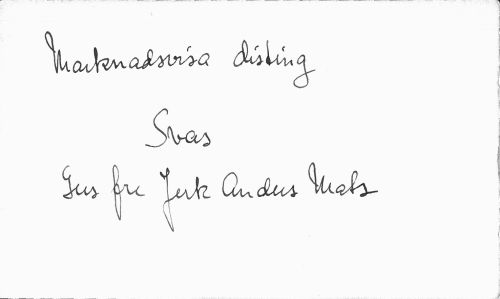 Marknadsvisa disting
Svas
Gus fru Jerk Anders Mats